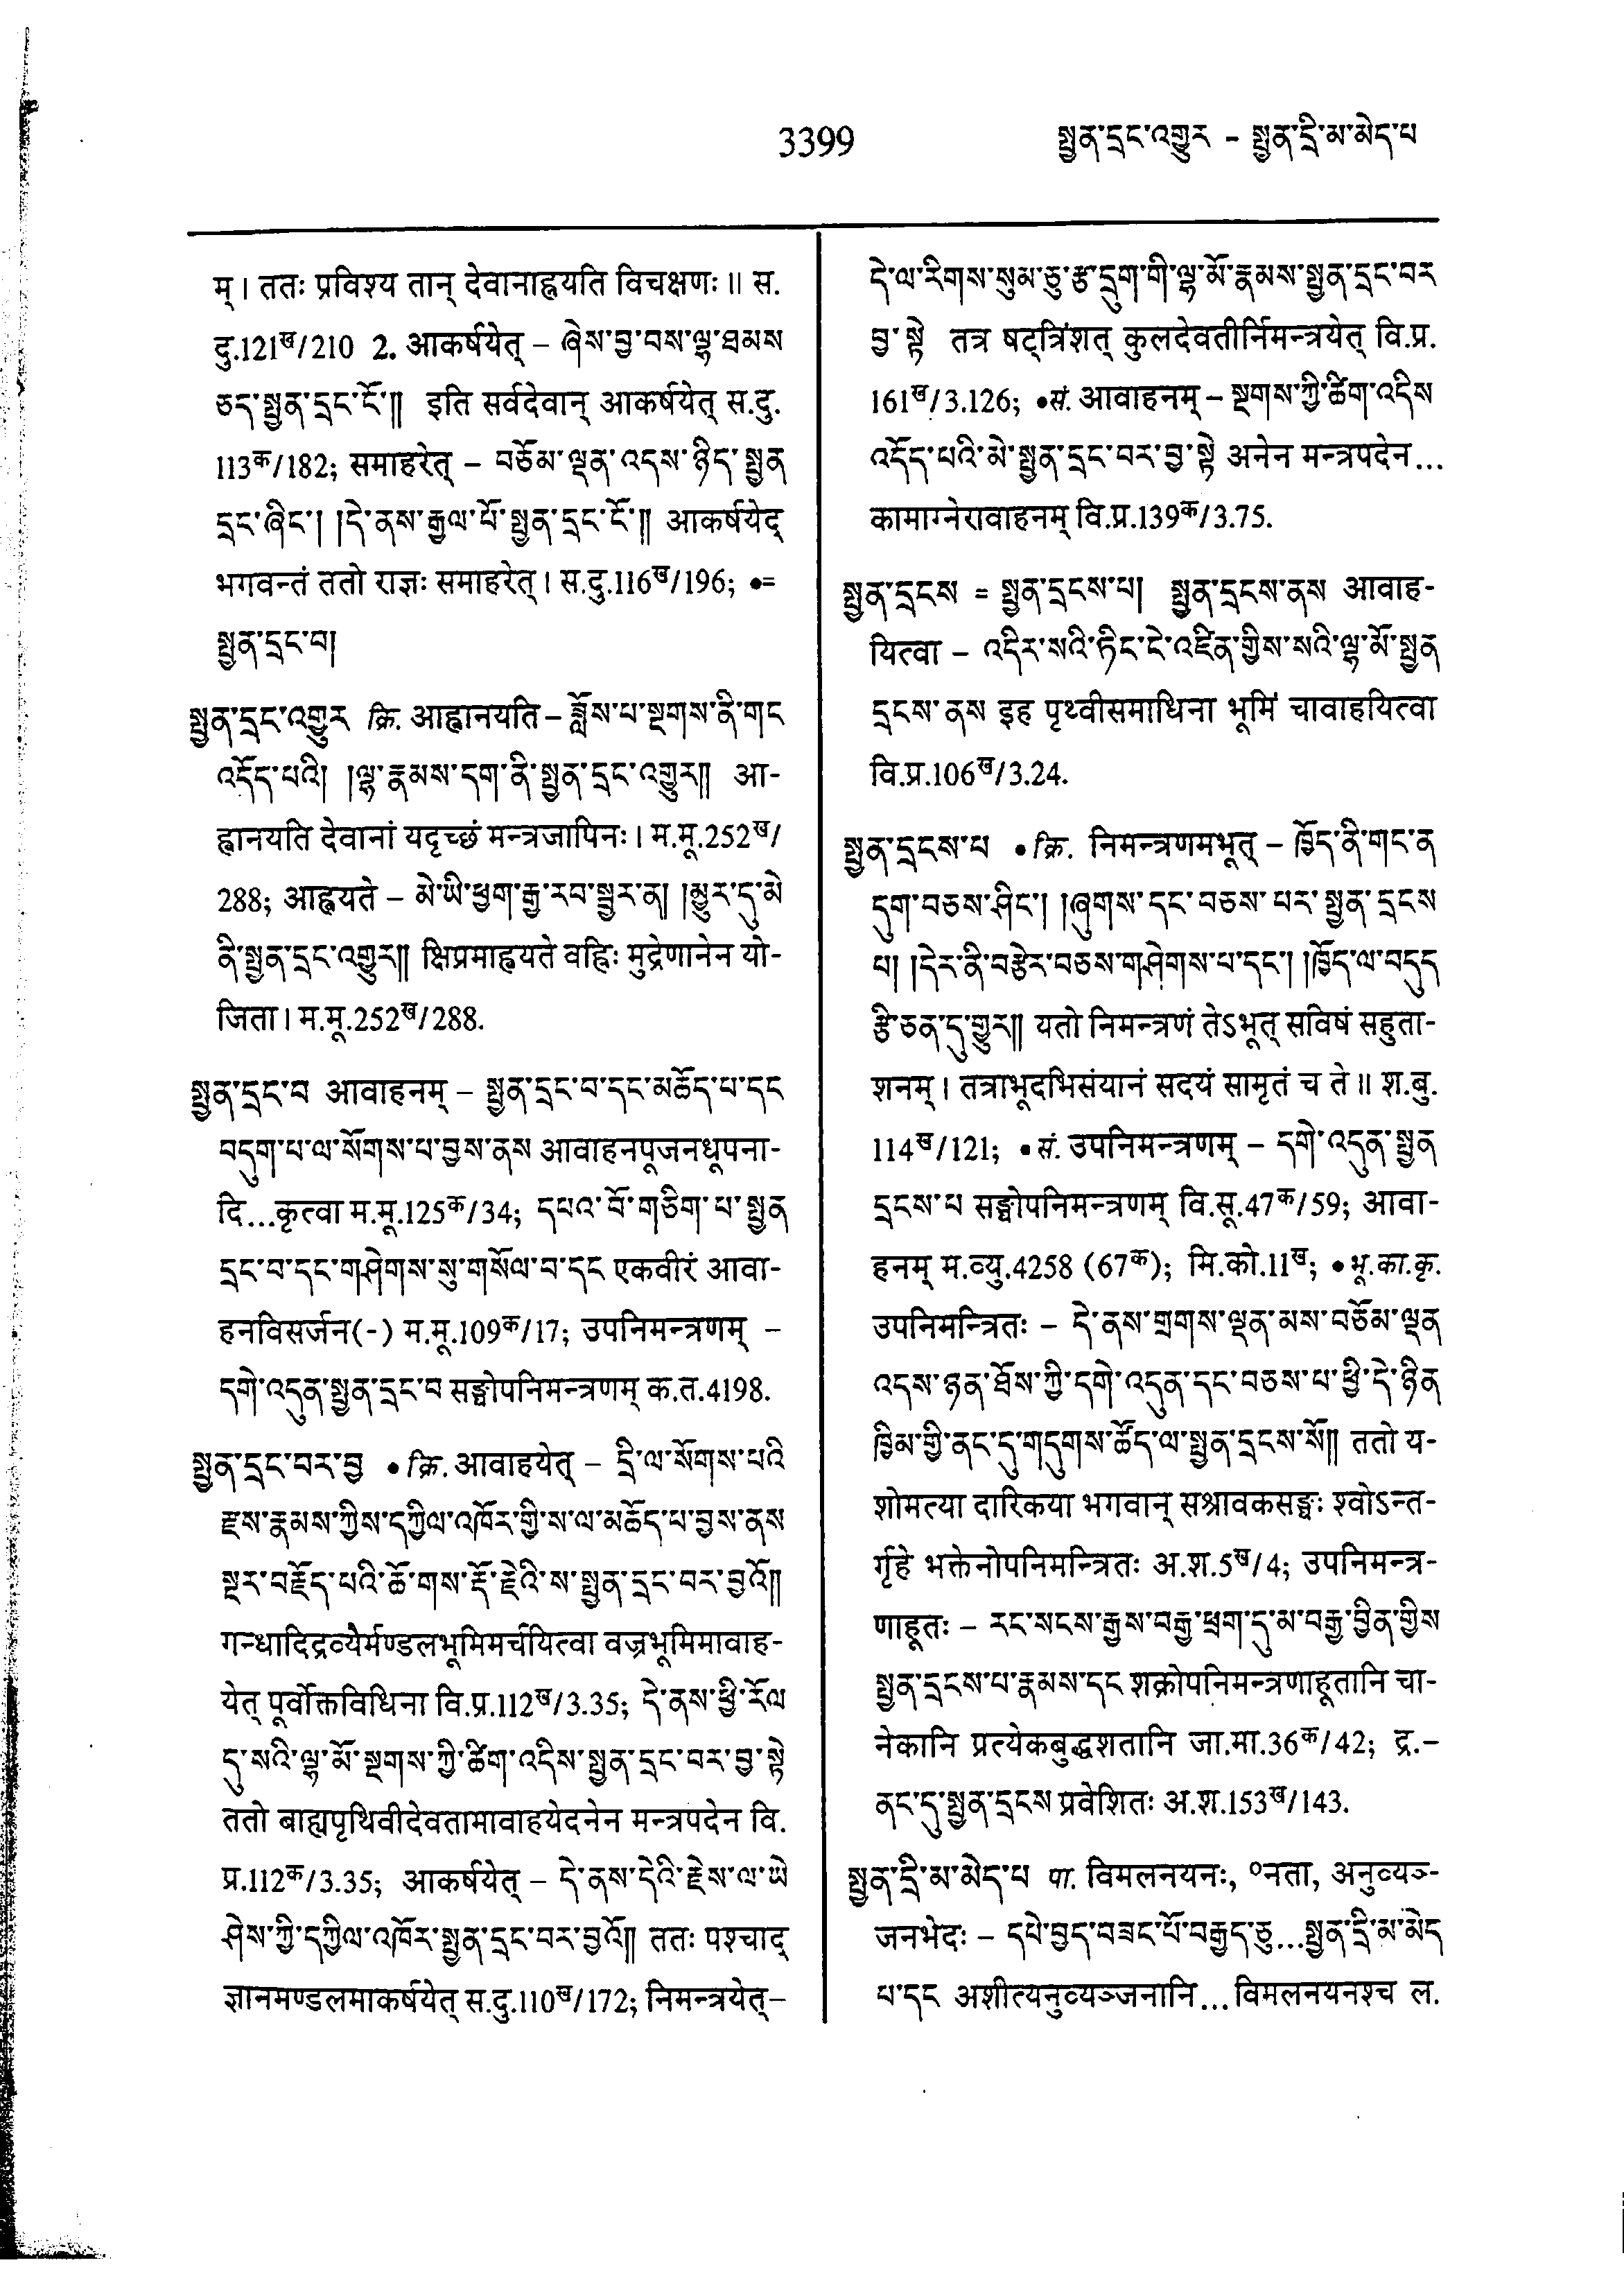 3399
སྤྱན་དྲང་འགྱུར – སྤྱན་དྲི་མ་མེད་པ
म्। ततः प्रविश्य तान् देवानाह्वयति विचक्षणः॥ स.
दु.121ख/210 2. आकर्षयेत् – ཞེས་བྱ་བས་ལྷ་ཐམས
ཅད་སྤྱན་དྲང་ངོ་༎ इति सर्वदेवान् आकर्षयेत् स.दु.
113क/182; समाहरेत् – བཅོམ་ལྡན་འདས་ཉིད་སྤྱན
དྲང་ཞིང་། །དེ་ནས་རྒྱལ་པོ་སྤྱན་དྲང་ངོ་༎ आकर्षयेद्
भगवन्तं ततो राज्ञः समाहरेत्। स.दु.116ख/196; •=
སྤྱན་དྲང་བ།
སྤྱན་དྲང་འགྱུར क्रि. आह्वानयति – བཟློས་པ་སྔགས་ནི་གང
འདོད་པའི། །ལྷ་རྣམས་དག་ནི་སྤྱན་དྲང་འགྱུར༎ आ-
ह्वानयति देवानां यदृच्छं मन्त्रजापिनः। म.मू.252ख/
288; आह्वयते – མེ་ཡི་ཕྱག་རྒྱ་རབ་སྦྱར་ན། །མྱུར་དུ་མེ
ནི་སྤྱན་དྲང་འགྱུར༎ क्षिप्रमाह्वयते वह्निः मुद्रेणानेन यो-
जिता। म.मू.252ख/288.
སྤྱན་དྲང་བ आवाहनम् – སྤྱན་དྲང་བ་དང་མཆོད་པ་དང
བདུག་པ་ལ་སོགས་པ་བྱས་ནས आवाहनपूजनधूपना-
दि...कृत्वा म.मू.125क/34; དཔའ་བོ་གཅིག་པ་སྤྱན
དྲང་བ་དང་གཤེགས་སུ་གསོལ་བ་དང एकवीरं आवा-
हनविसर्जन(-) म.मू.109क/17; उपनिमन्त्रणम् –
དགེ་འདུན་སྤྱན་དྲང་བ सङ्घोपनिमन्त्रणम् क.त.4198.
སྤྱན་དྲང་བར་བྱ • क्रि. आवाहयेत् – དྲི་ལ་སོགས་པའི
རྫས་རྣམས་ཀྱིས་དཀྱིལ་འཁོར་གྱི་ས་ལ་མཆོད་པ་བྱས་ནས
སྔར་བརྗོད་པའི་ཆོ་གས་རྡོ་རྗེའི་ས་སྤྱན་དྲང་བར་བྱའོ༎
गन्धादिद्रव्यैर्मण्डलभूमिमर्चयित्वा वज्रभूमिमावाह-
येत् पूर्वोक्तविधिना वि.प्र.112ख/3.35; དེ་ནས་ཕྱི་རོལ
དུ་སའི་ལྷ་མོ་སྔགས་ཀྱི་ཚིག་འདིས་སྤྱན་དྲང་བར་བྱ་སྟེ
ततो बाह्यपृथिवीदेवतामावाहयेदनेन मन्त्रपदेन वि.
प्र.112क/3.35; आकर्षयेत् – དེ་ནས་དེའི་རྗེས་ལ་ཡེ
ཤེས་ཀྱི་དཀྱིལ་འཁོར་སྤྱན་དྲང་བར་བྱའོ༎ ततः पश्चाद्
ज्ञानमण्डलमाकर्षयेत् स.दु.110ख/172; निमन्त्रयेत्–
དེ་ལ་རིགས་སུམ་ཅུ་རྩ་དྲུག་གི་ལྷ་མོ་རྣམས་སྤྱན་དྲང་བར
བྱ་སྟེ तत्र षट्त्रिंशत् कुलदेवतीर्निमन्त्रयेत् वि.प्र.
161ख/3.126; •सं. आवाहनम् – སྔགས་ཀྱི་ཚིག་འདིས
འདོད་པའི་མེ་སྤྱན་དྲང་བར་བྱ་སྟེ अनेन मन्त्रपदेन...
कामाग्नेरावाहनम् वि.प्र.139क/3.75.
སྤྱན་དྲངས = སྤྱན་དྲངས་པ། སྤྱན་དྲངས་ནས आवाह-
यित्वा – འདིར་སའི་ཏིང་ངེ་འཛིན་གྱིས་སའི་ལྷ་མོ་སྤྱན
དྲངས་ནས इह पृथ्वीसमाधिना भूमिं चावाहयित्वा
वि.प्र.106ख/3.24.
སྤྱན་དྲངས་པ • क्रि. निमन्त्रणमभूत् – ཁྱོད་ནི་གང་ན
དུག་བཅས་ཤིང་། །ཞུགས་དང་བཅས་པར་སྤྱན་དྲངས
པ། །དེར་ནི་བརྩེར་བཅས་གཤེགས་པ་དང་། །ཁྱོད་ལ་བདུད
རྩི་ཅན་དུ་གྱུར༎ यतो निमन्त्रणं तेऽभूत् सविषं सहुता-
शनम्। तत्राभूदभिसंयानं सदयं सामृतं च ते॥ श.बु.
114ख/121; • सं. उपनिमन्त्रणम् – དགེ་འདུན་སྤྱན
དྲངས་པ सङ्घोपनिमन्त्रणम् वि.सू.47क/59; आवा-
हनम् म.व्यु.4258 (67क); मि.को.11ख; • भू.का.कृ.
उपनिमन्त्रितः – དེ་ནས་གྲགས་ལྡན་མས་བཅོམ་ལྡན
འདས་ཉན་ཐོས་ཀྱི་དགེ་འདུན་དང་བཅས་པ་ཕྱི་དེ་ཉིན
ཁྱིམ་གྱི་ནང་དུ་གདུགས་ཚོད་ལ་སྤྱན་དྲངས་སོ༎ ततो य-
शोमत्या दारिकया भगवान् सश्रावकसङ्घः श्वोऽन्त-
र्गृहे भक्तेनोपनिमन्त्रितः अ.श.5ख/4; उपनिमन्त्र-
णाहूतः – རང་སངས་རྒྱས་བརྒྱ་ཕྲག་དུ་མ་བརྒྱ་བྱིན་གྱིས
སྤྱན་དྲངས་པ་རྣམས་དང शक्रोपनिमन्त्रणाहूतानि चा-
नेकानि प्रत्येकबुद्धशतानि जा.मा.36क/42; द्र.–
ནང་དུ་སྤྱན་དྲངས प्रवेशितः अ.श.153ख/143.
སྤྱན་དྲི་མ་མེད་པ पा. विमलनयनः, ०नता, अनुव्यञ्-
जनभेदः – དཔེ་བྱད་བཟང་པོ་བརྒྱད་ཅུ...སྤྱན་དྲི་མ་མེད
པ་དང अशीत्यनुव्यञ्जनानि...विमलनयनश्च ल.